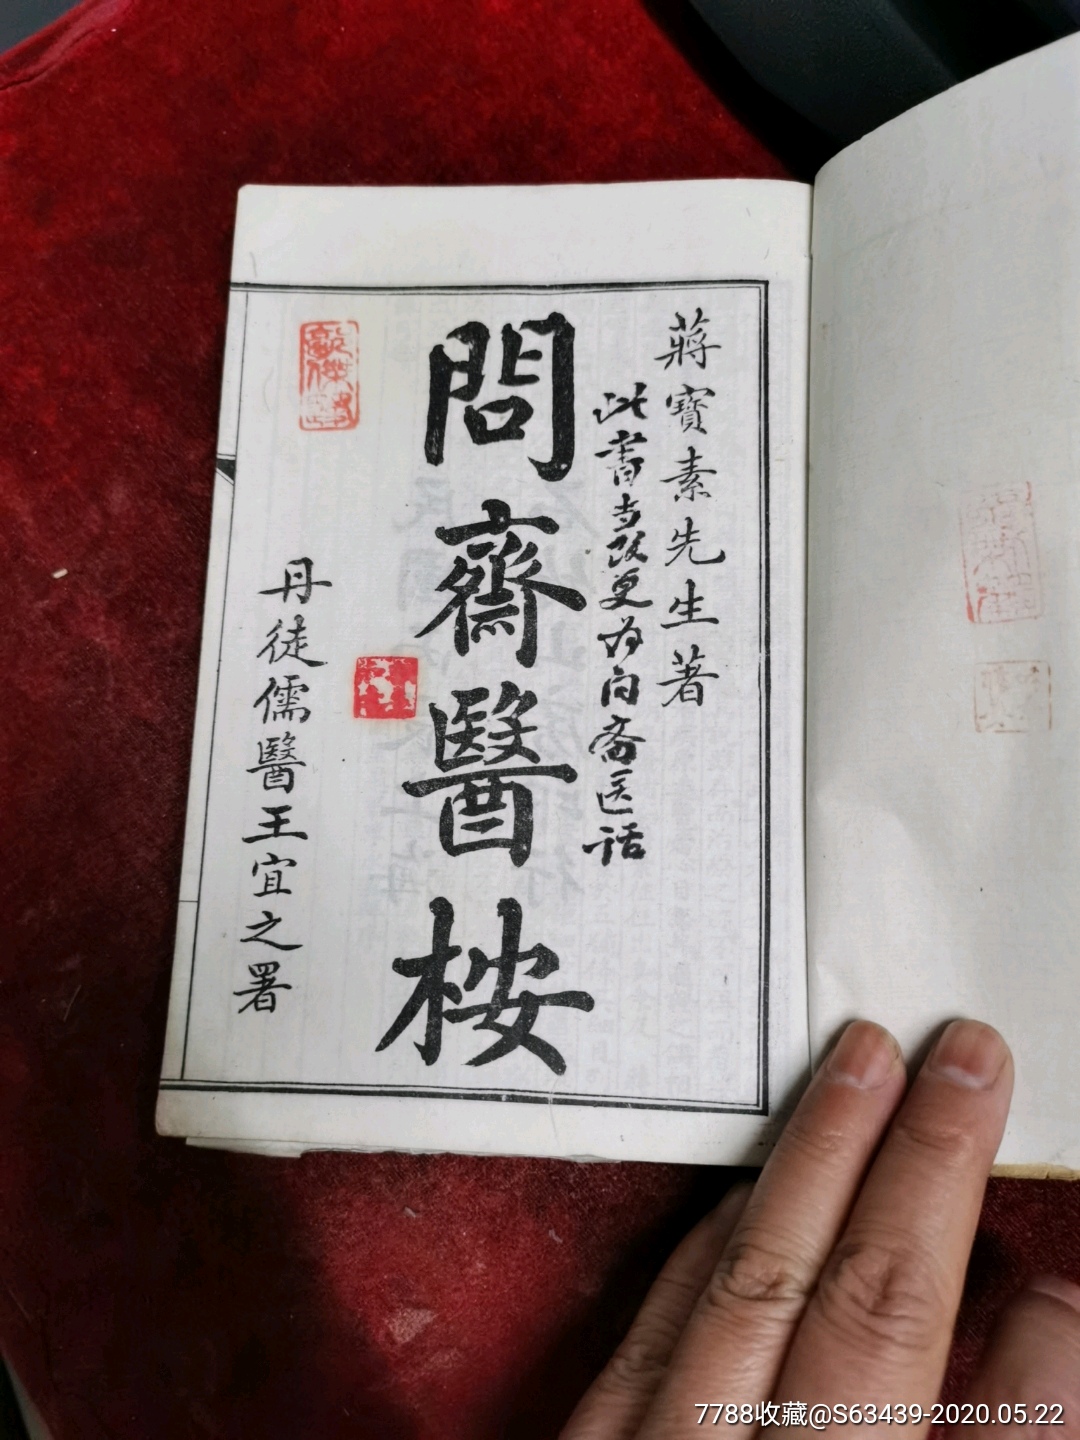 蔣寶素先生著
此書当改更为问斋医话
問齋醫桉
丹徒儒醫王宜之署
7788收藏@S63439-2020.05.22